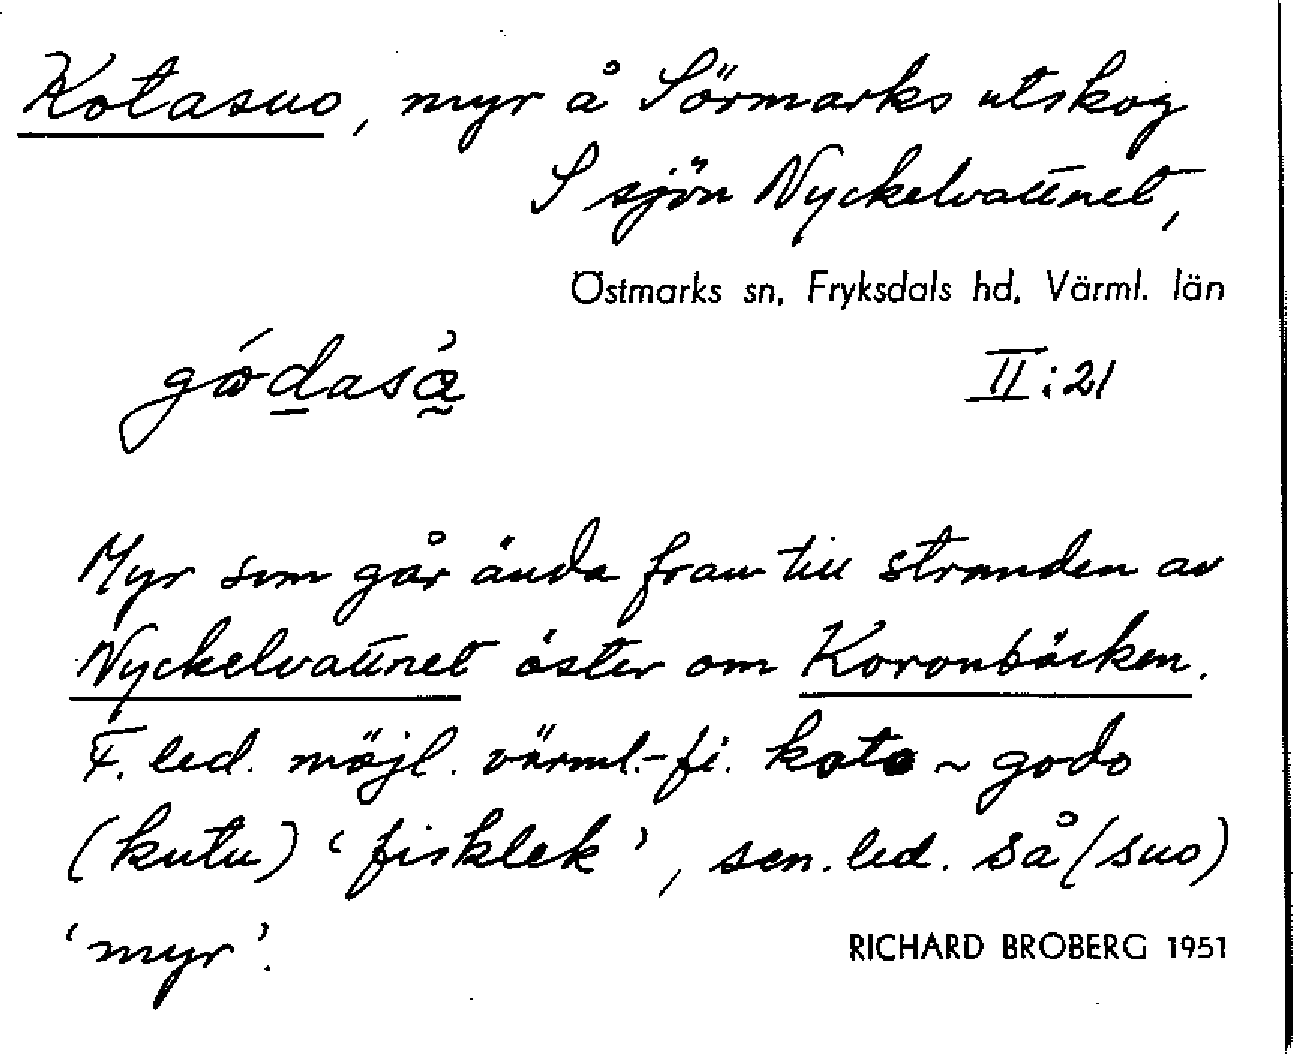 Kotasuo, myr å Sörmarks utskog
S sjön Nyckelvattnet,
Östmarks sn, Fryksdals hd, Värml. län
II:21
Myr som går ända fram till stranden av
Nyckelvattnet öster om Koronbäcken.
F. led. möjl. värml.-fi. koto ~ godo
(kutu) ‘fisklek’, sen. led. så (suo)
‘myr’.
RICHARD BROBERG 1951